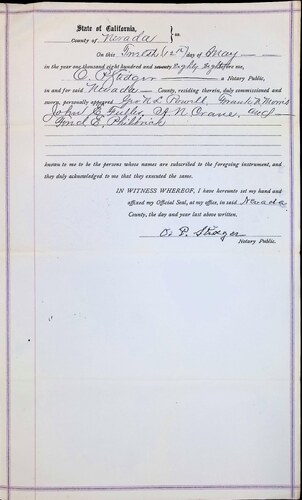 State of California,
County of Nevada } ss.
On this Tenth (10th) day of May
in the year one thousand eight hundred and seventy Eighty Eight before me,
O. P. Stidger a Notary Public,
in and for said Nevada County, residing therein, duly commissioned and
sworn, personally appeared Geo N L Powell, Frank W Morris
John E Fuller, A N Crane, and
Fred E. Philbrick
known to me to be the persons whose names are subscribed to the foregoing instrument, and
they duly acknowledged to me that they executed the same.
IN WITNESS WHEREOF, I have hereunto set my hand and
affixed my Official Seal, at my office, in said Nevada
County, the day and year last above written.
O. P. Stidger
Notary Public.